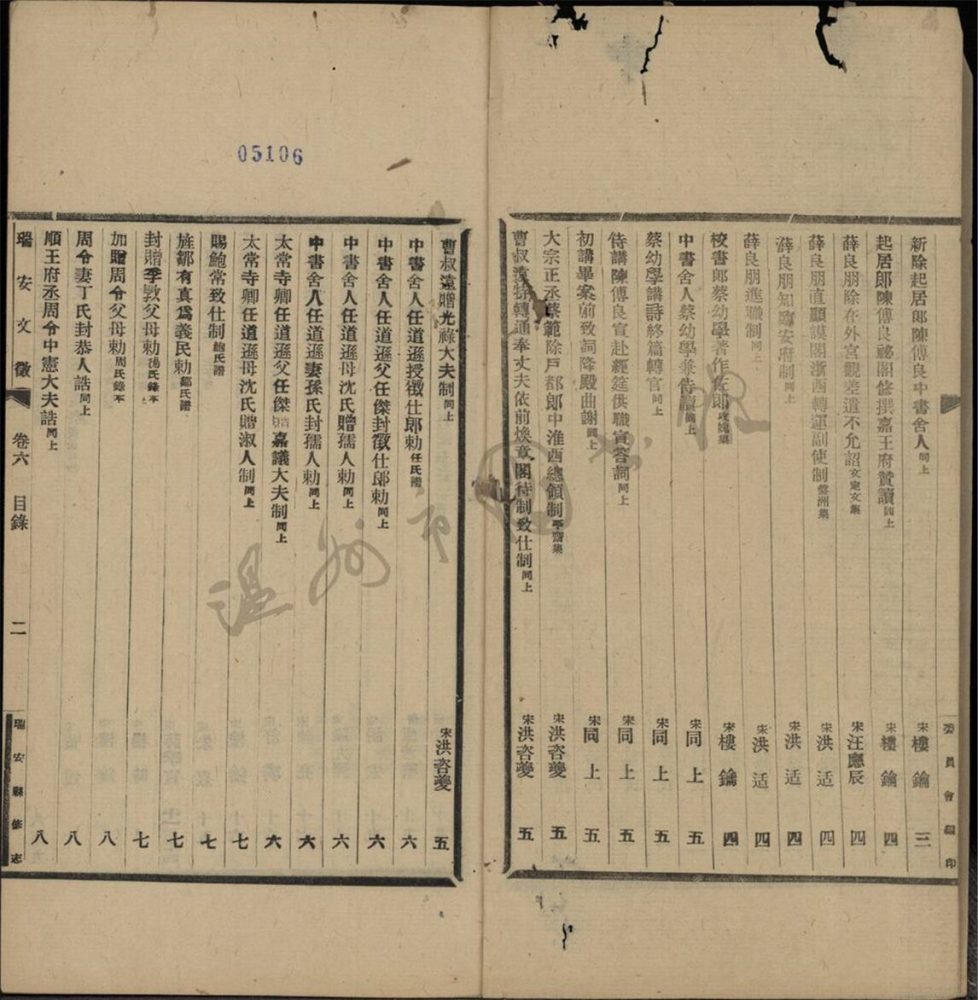 05106
新除起居郎陳傅良中書舍人同上 宋樓鑰 三
起居郎陳傅良祕閣修撰嘉王府贊讀同上 宋樓鑰 四
薛良朋除在外宮觀差遣不允詔文定文集 宋汪應辰 四
薛良朋直顯謨閣浙西轉運副使制盤洲集 宋洪适 四
薛良朋知臨安府制同上 宋洪适 四
薛良朋進職制同上 宋洪适 四
校書郎蔡幼學著作佐郎攻媿集 宋樓鑰 四
中書舍人蔡幼學兼侍讀同上 宋同上 五
蔡幼學講詩終篇轉官同上 宋同上 五
侍講陳傅良宣赴經筵供職宣答詞同上 宋同上 五
初講畢案前致詞降殿曲謝同上 宋同上 五
大宗正丞蔡範除戶部郎中淮西總領制平齋集 宋洪咨夔 五
曹叔遠特轉通奉丈夫依前煥章閣待制致仕制同上 宋洪咨夔 五
委員會編印
曹叔遠贈光祿大夫制同上 宋洪咨夔 五
中書舍人任道遜授徵仕郎勅任氏譜 六
中書舍人任道遜父任傑封徵仕郎勅同上 六
中書舍人任道遜母沈氏贈孺人勅同上 六
中書舍人任道遜妻孫氏封孺人勅同上 六
太常寺卿任道遜父任傑贈嘉議大夫制同上 六
太常寺卿任道遜母沈氏贈淑人制同上 七
賜鮑常致仕制鮑氏譜 七
旌鄒有真爲義民勅鄒氏譜 七
封贈季敩父母勅 七
加贈周令父母勅周氏錄本 八
周令妻丁氏封恭人誥同上 八
順王府丞周令中憲大夫誥同上 八
瑞安文徵 卷六 目錄 二 瑞安縣修志
溫州市圖書館